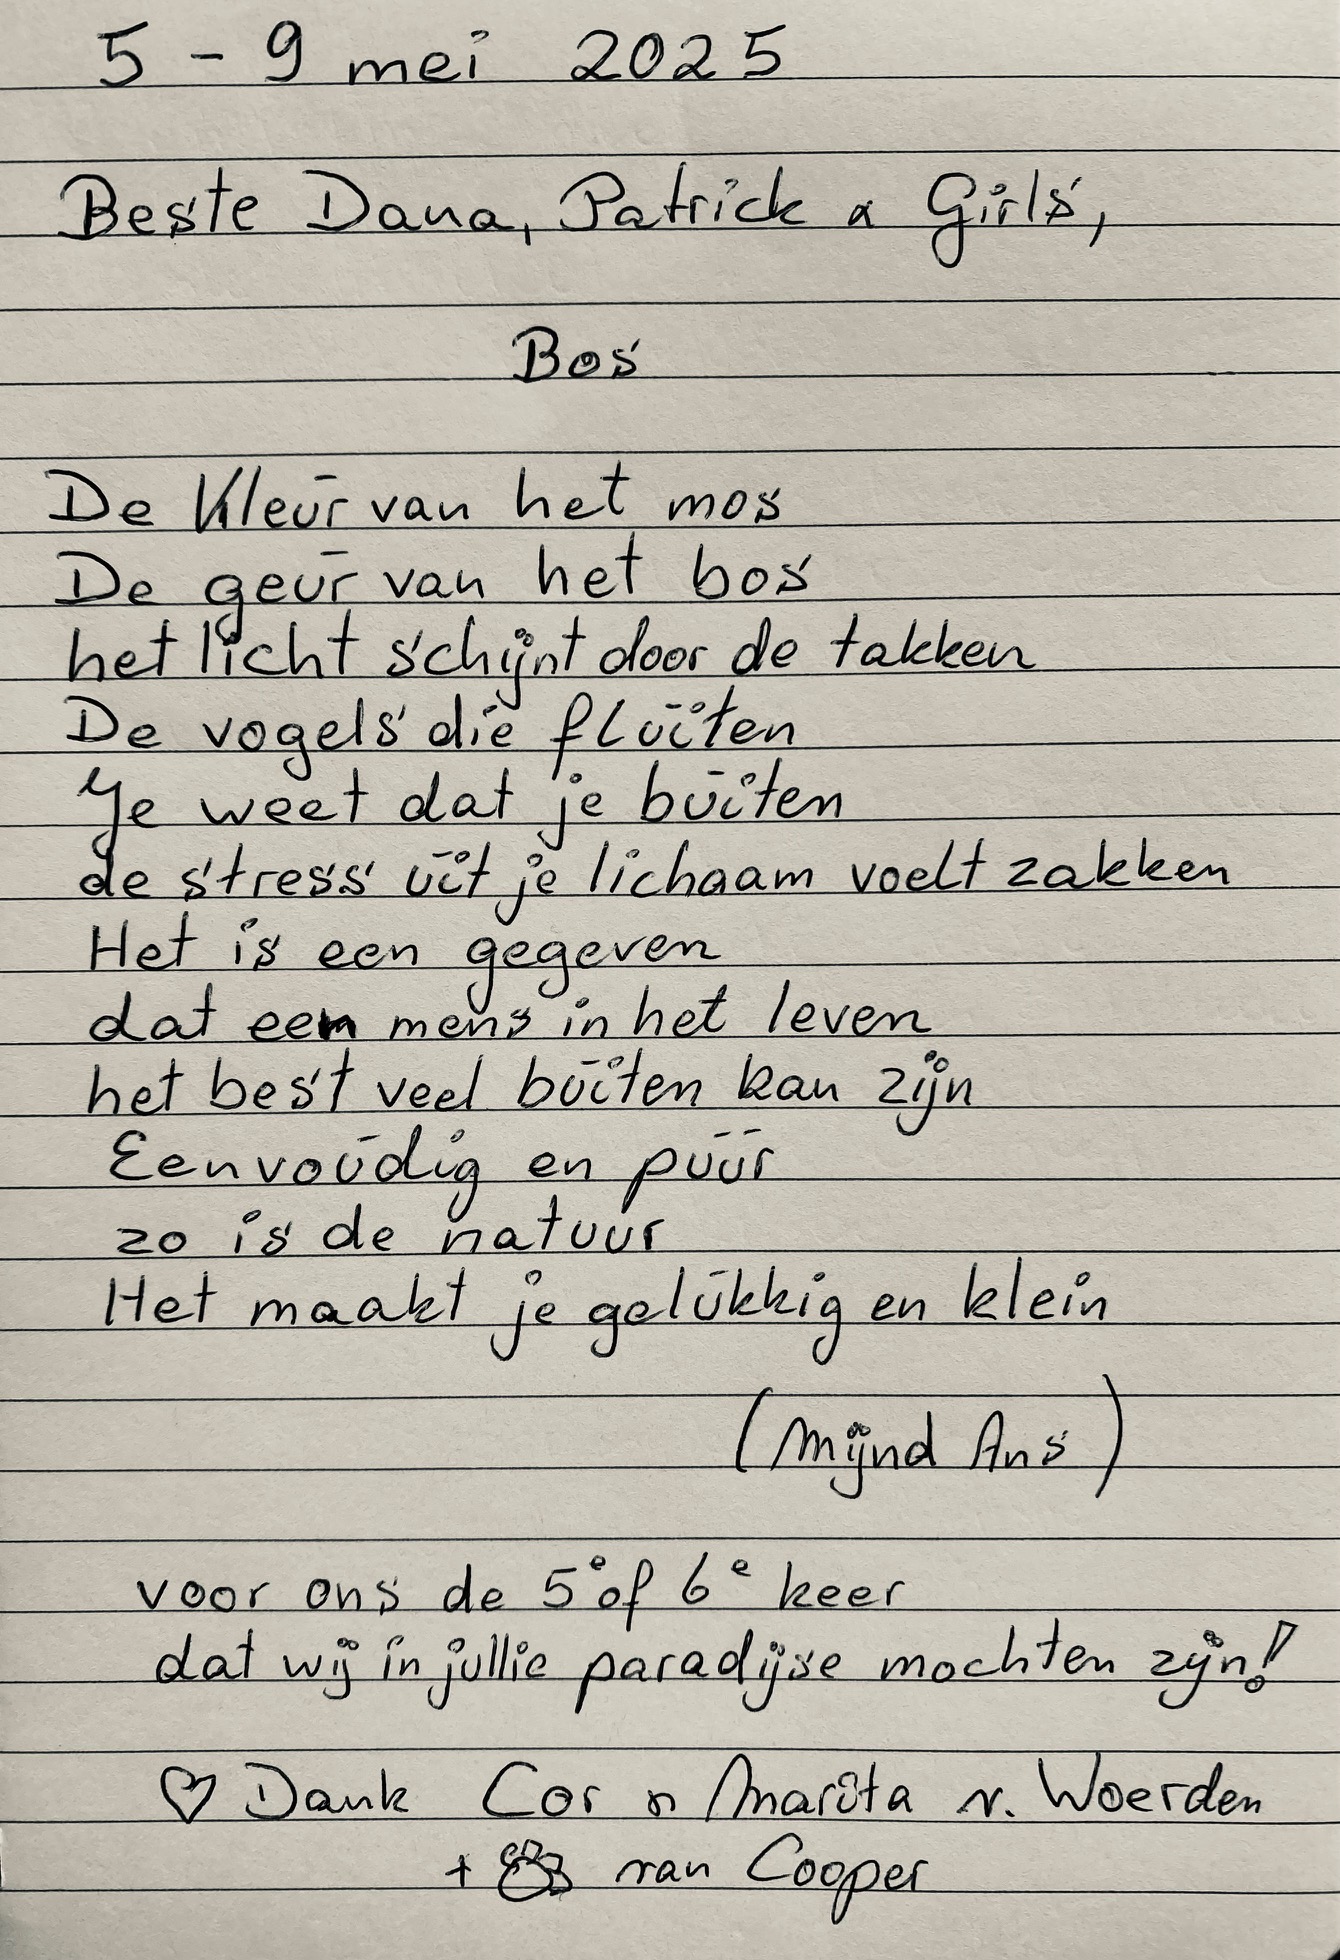 5 - 9 mei 2025
Beste Dana, Patrick & Girls,
Bos
De Kleur van het mos
De geur van het bos
het licht schijnt door de takken
De vogels die fluiten
Je weet dat je buiten
de stress uit je lichaam voelt zakken
Het is een gegeven
dat een mens in het leven
het best veel buiten kan zijn
Eenvoudig en puur
zo is de natuur
Het maakt je gelukkig en klein
(Mijnd Ans)
voor ons de 5e of 6e keer
dat wij in jullie paradijse mochten zijn!
♡ Dank Cor & Marita v. Woerden
+ 🐾 van Cooper